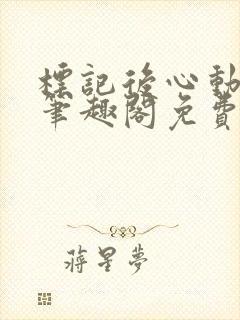 標記後心動
筆趣閣免費
蔣星夢